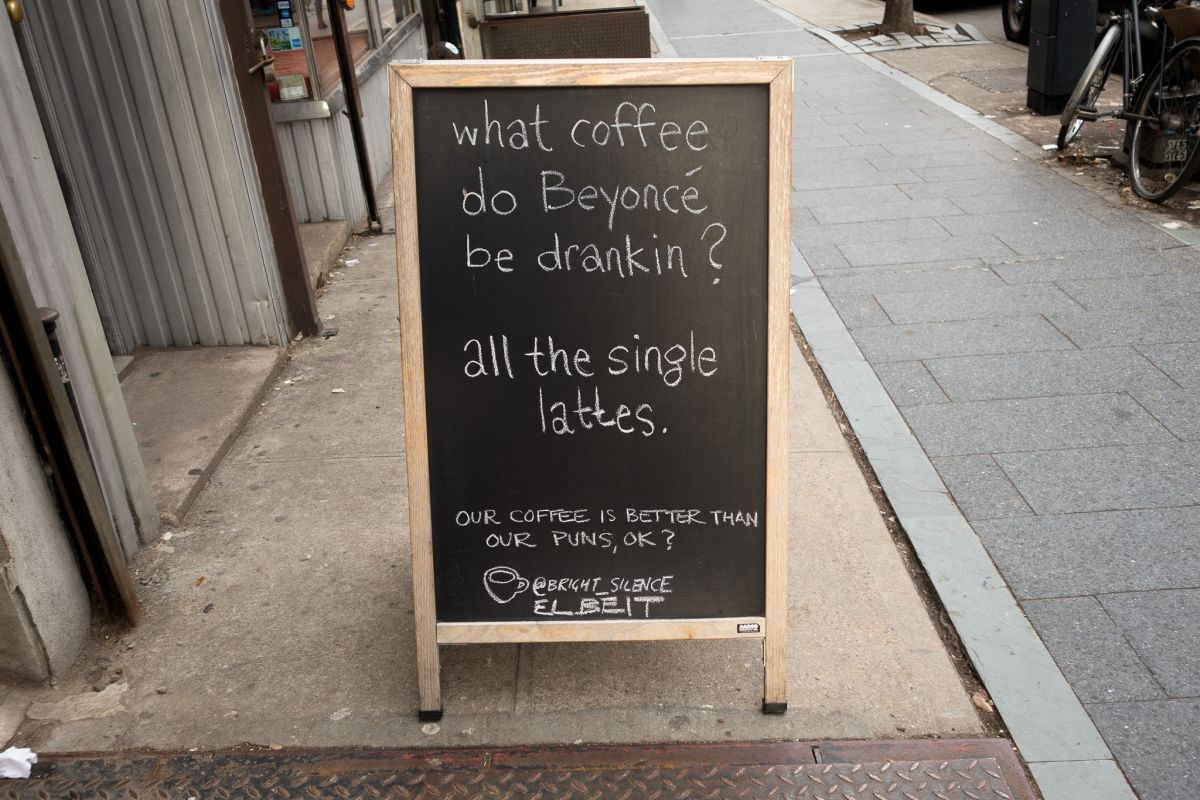 what coffee
do Beyoncé
be drankin?
all the single
lattes.
OUR COFFEE IS BETTER THAN
OUR PUNS, OK?
@BRIGHT_SILENCE
EL BEIT